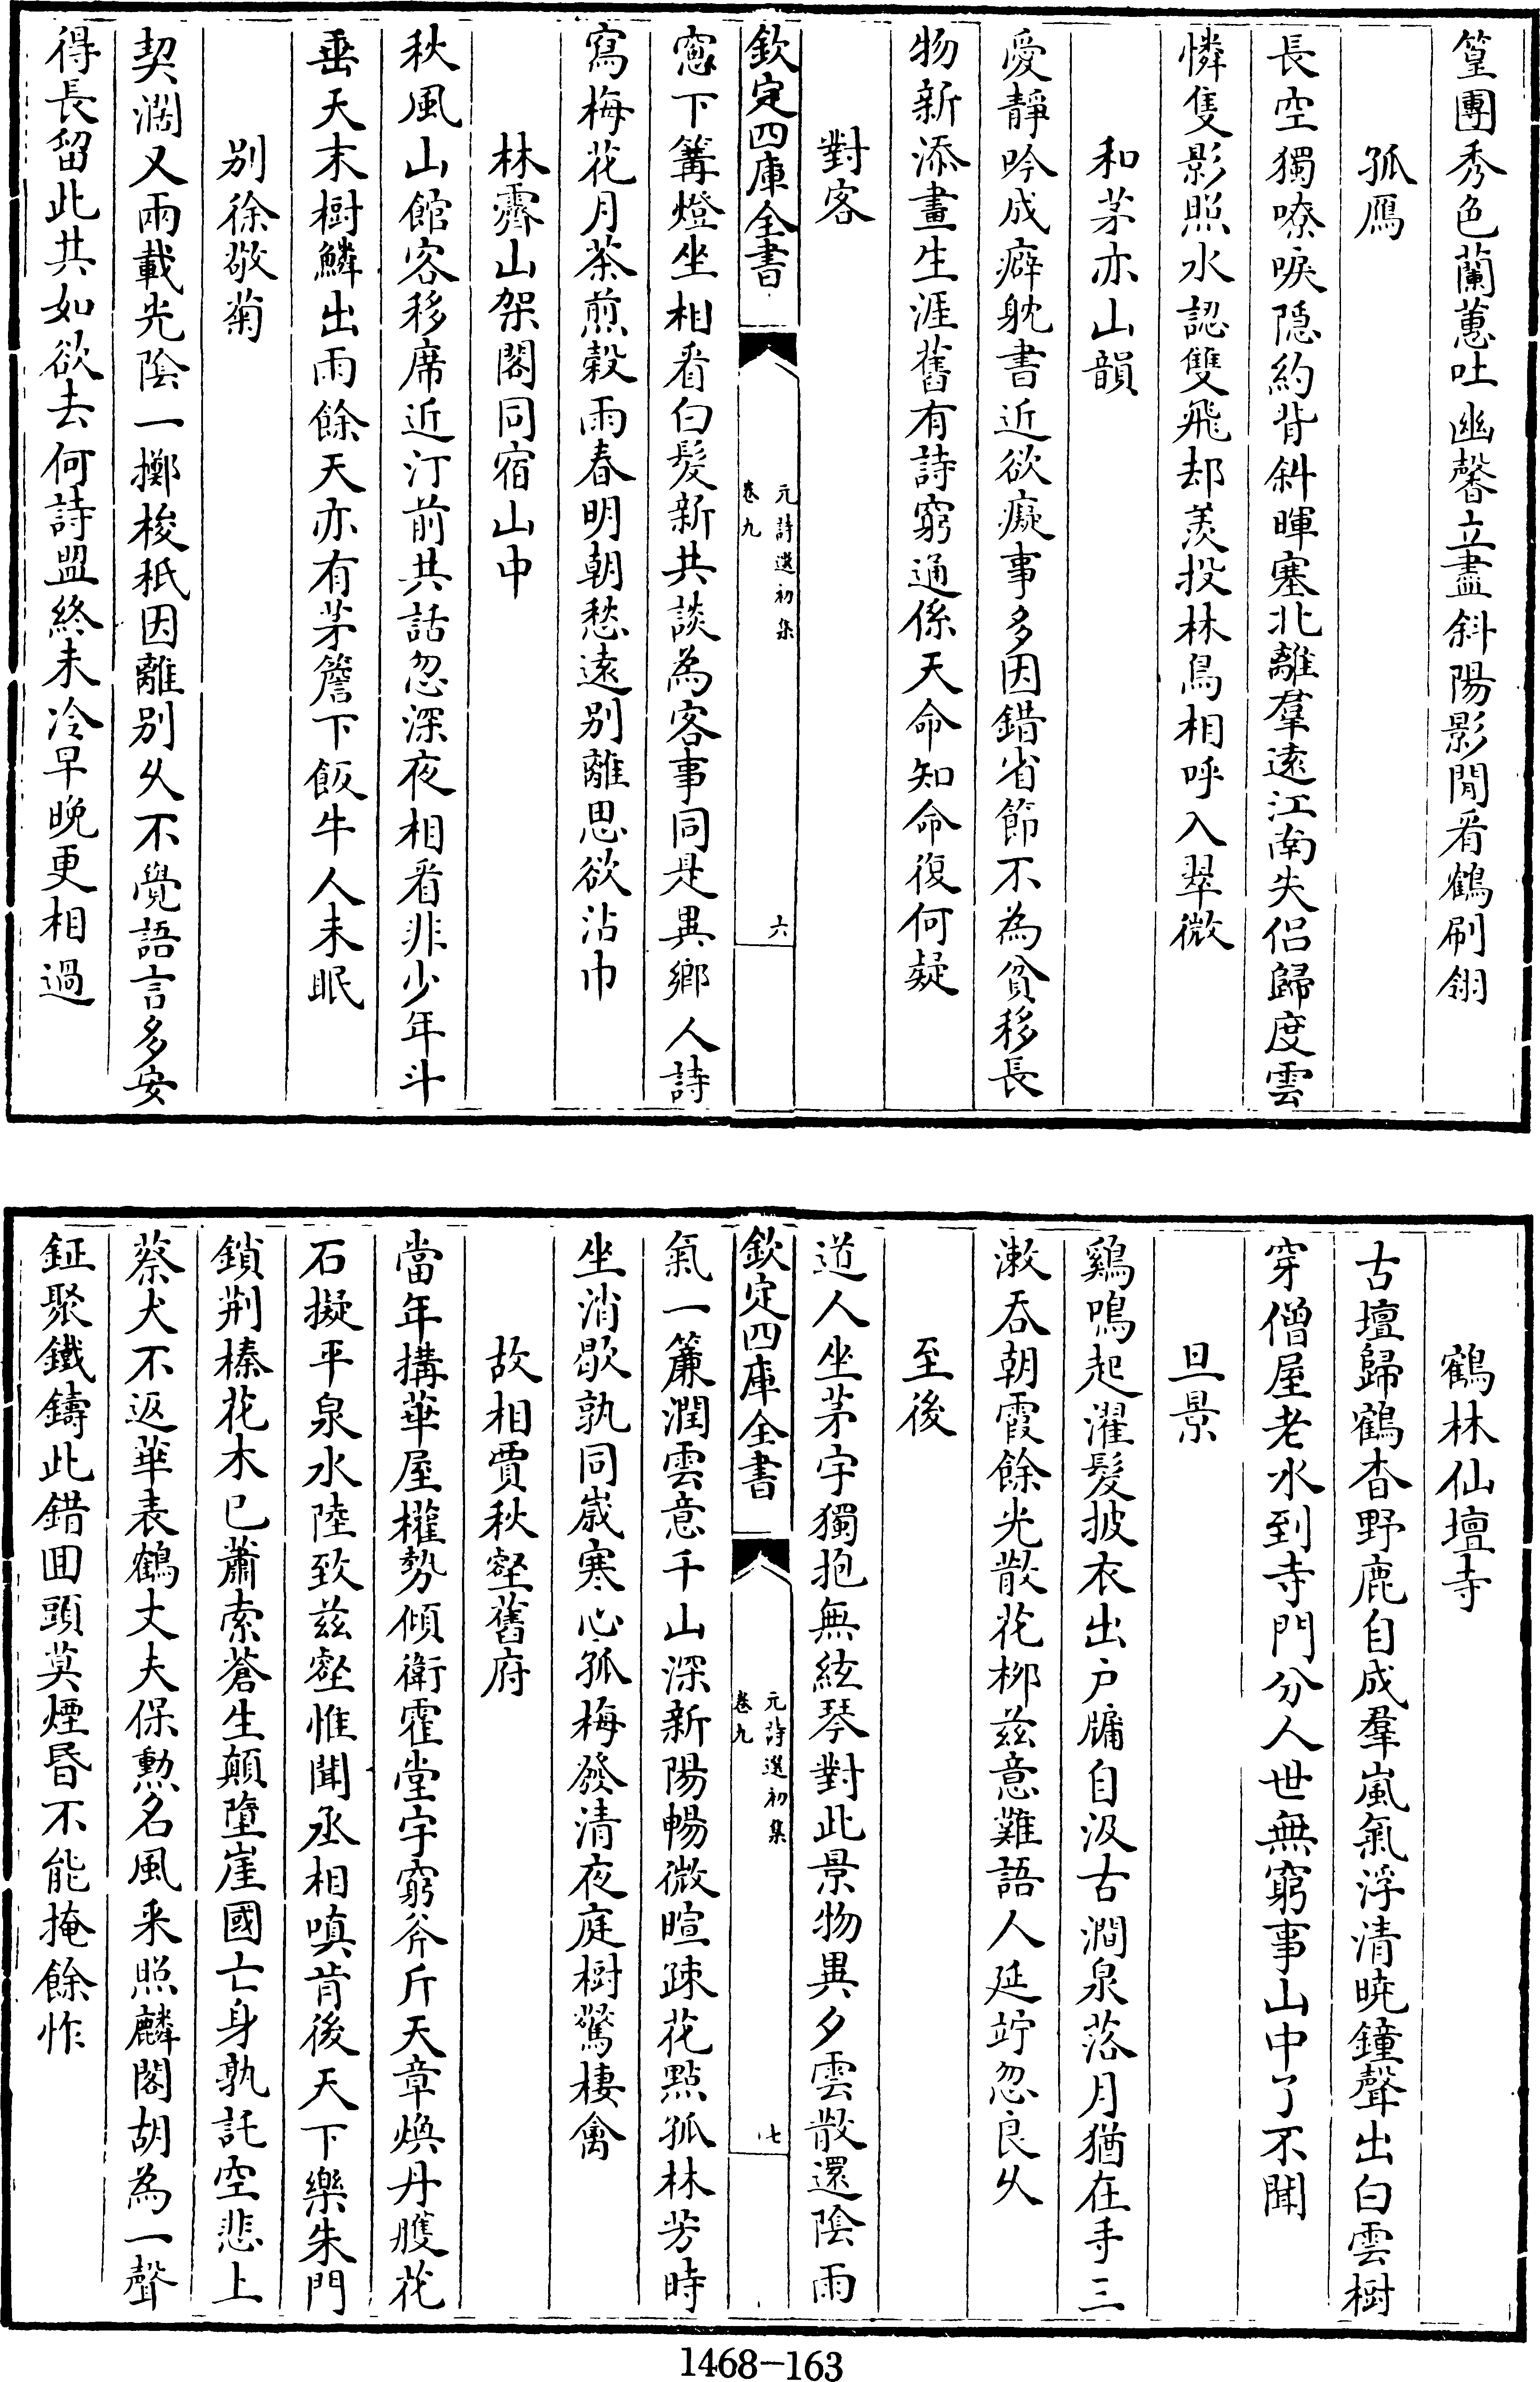 篁團秀色蘭蕙吐幽馨立盡斜陽影閒看鶴刷翎
孤鴈
長空獨嘹唳隠約背斜暉塞北離羣逺江南失侣歸度雲
憐隻影照水認雙飛却羨投林鳥相呼入翠微
和茅亦山韻
愛靜吟成癖躭書近欲癡事多因錯省節不為貧移長
物新添畫生涯舊有詩窮通係天命知命復何疑
對客
欽定四庫全書
元詩選初集
卷九
六
窻下篝燈坐相看白髮新共談為客事同是異鄉人詩
寫梅花月茶煎榖雨春明朝愁逺别離思欲沾巾
林霽山架閣同宿山中
秋風山館客移席近汀前共話忽深夜相看非少年斗
垂天末樹鱗出雨餘天亦有茅簷下飯牛人未眠
别徐敬菊
契濶又兩載光陰一擲梭秖因離别乆不覺語言多安
得長留此共如欲去何詩盟終未冷早晚更相過
鶴林仙壇寺
古壇歸鶴杳野鹿自成羣嵐氣浮清曉鐘聲出白雲樹
穿僧屋老水到寺門分人世無窮事山中了不聞
旦景
鷄鳴起濯髮披衣出户牖自汲古澗泉落月猶在手三
漱吞朝霞餘光散花柳兹意難語人延竚忽良乆
至後
道人坐茅宇獨抱無絃琴對此景物異夕雲散還陰雨
欽定四庫全書
元詩選初集
卷九
七
氣一簾潤雲意千山深新陽暢微暄疎花點孤林芳時
坐消歇孰同嵗寒心孤梅發清夜庭樹驚棲禽
故相賈秋壑舊府
當年搆華屋權勢傾衛霍堂宇窮斧斤天章煥丹雘花
石擬平泉水陸致兹壑惟聞丞相嗔肯後天下樂朱門
鎖荆榛花木已蕭索蒼生顛墮崖國亡身孰託空悲上
蔡犬不返華表鶴丈夫保勲名風采照麟閣胡為一聲
鉦聚鐵鑄此錯囬頭莫煙昏不能掩餘怍
1468-163